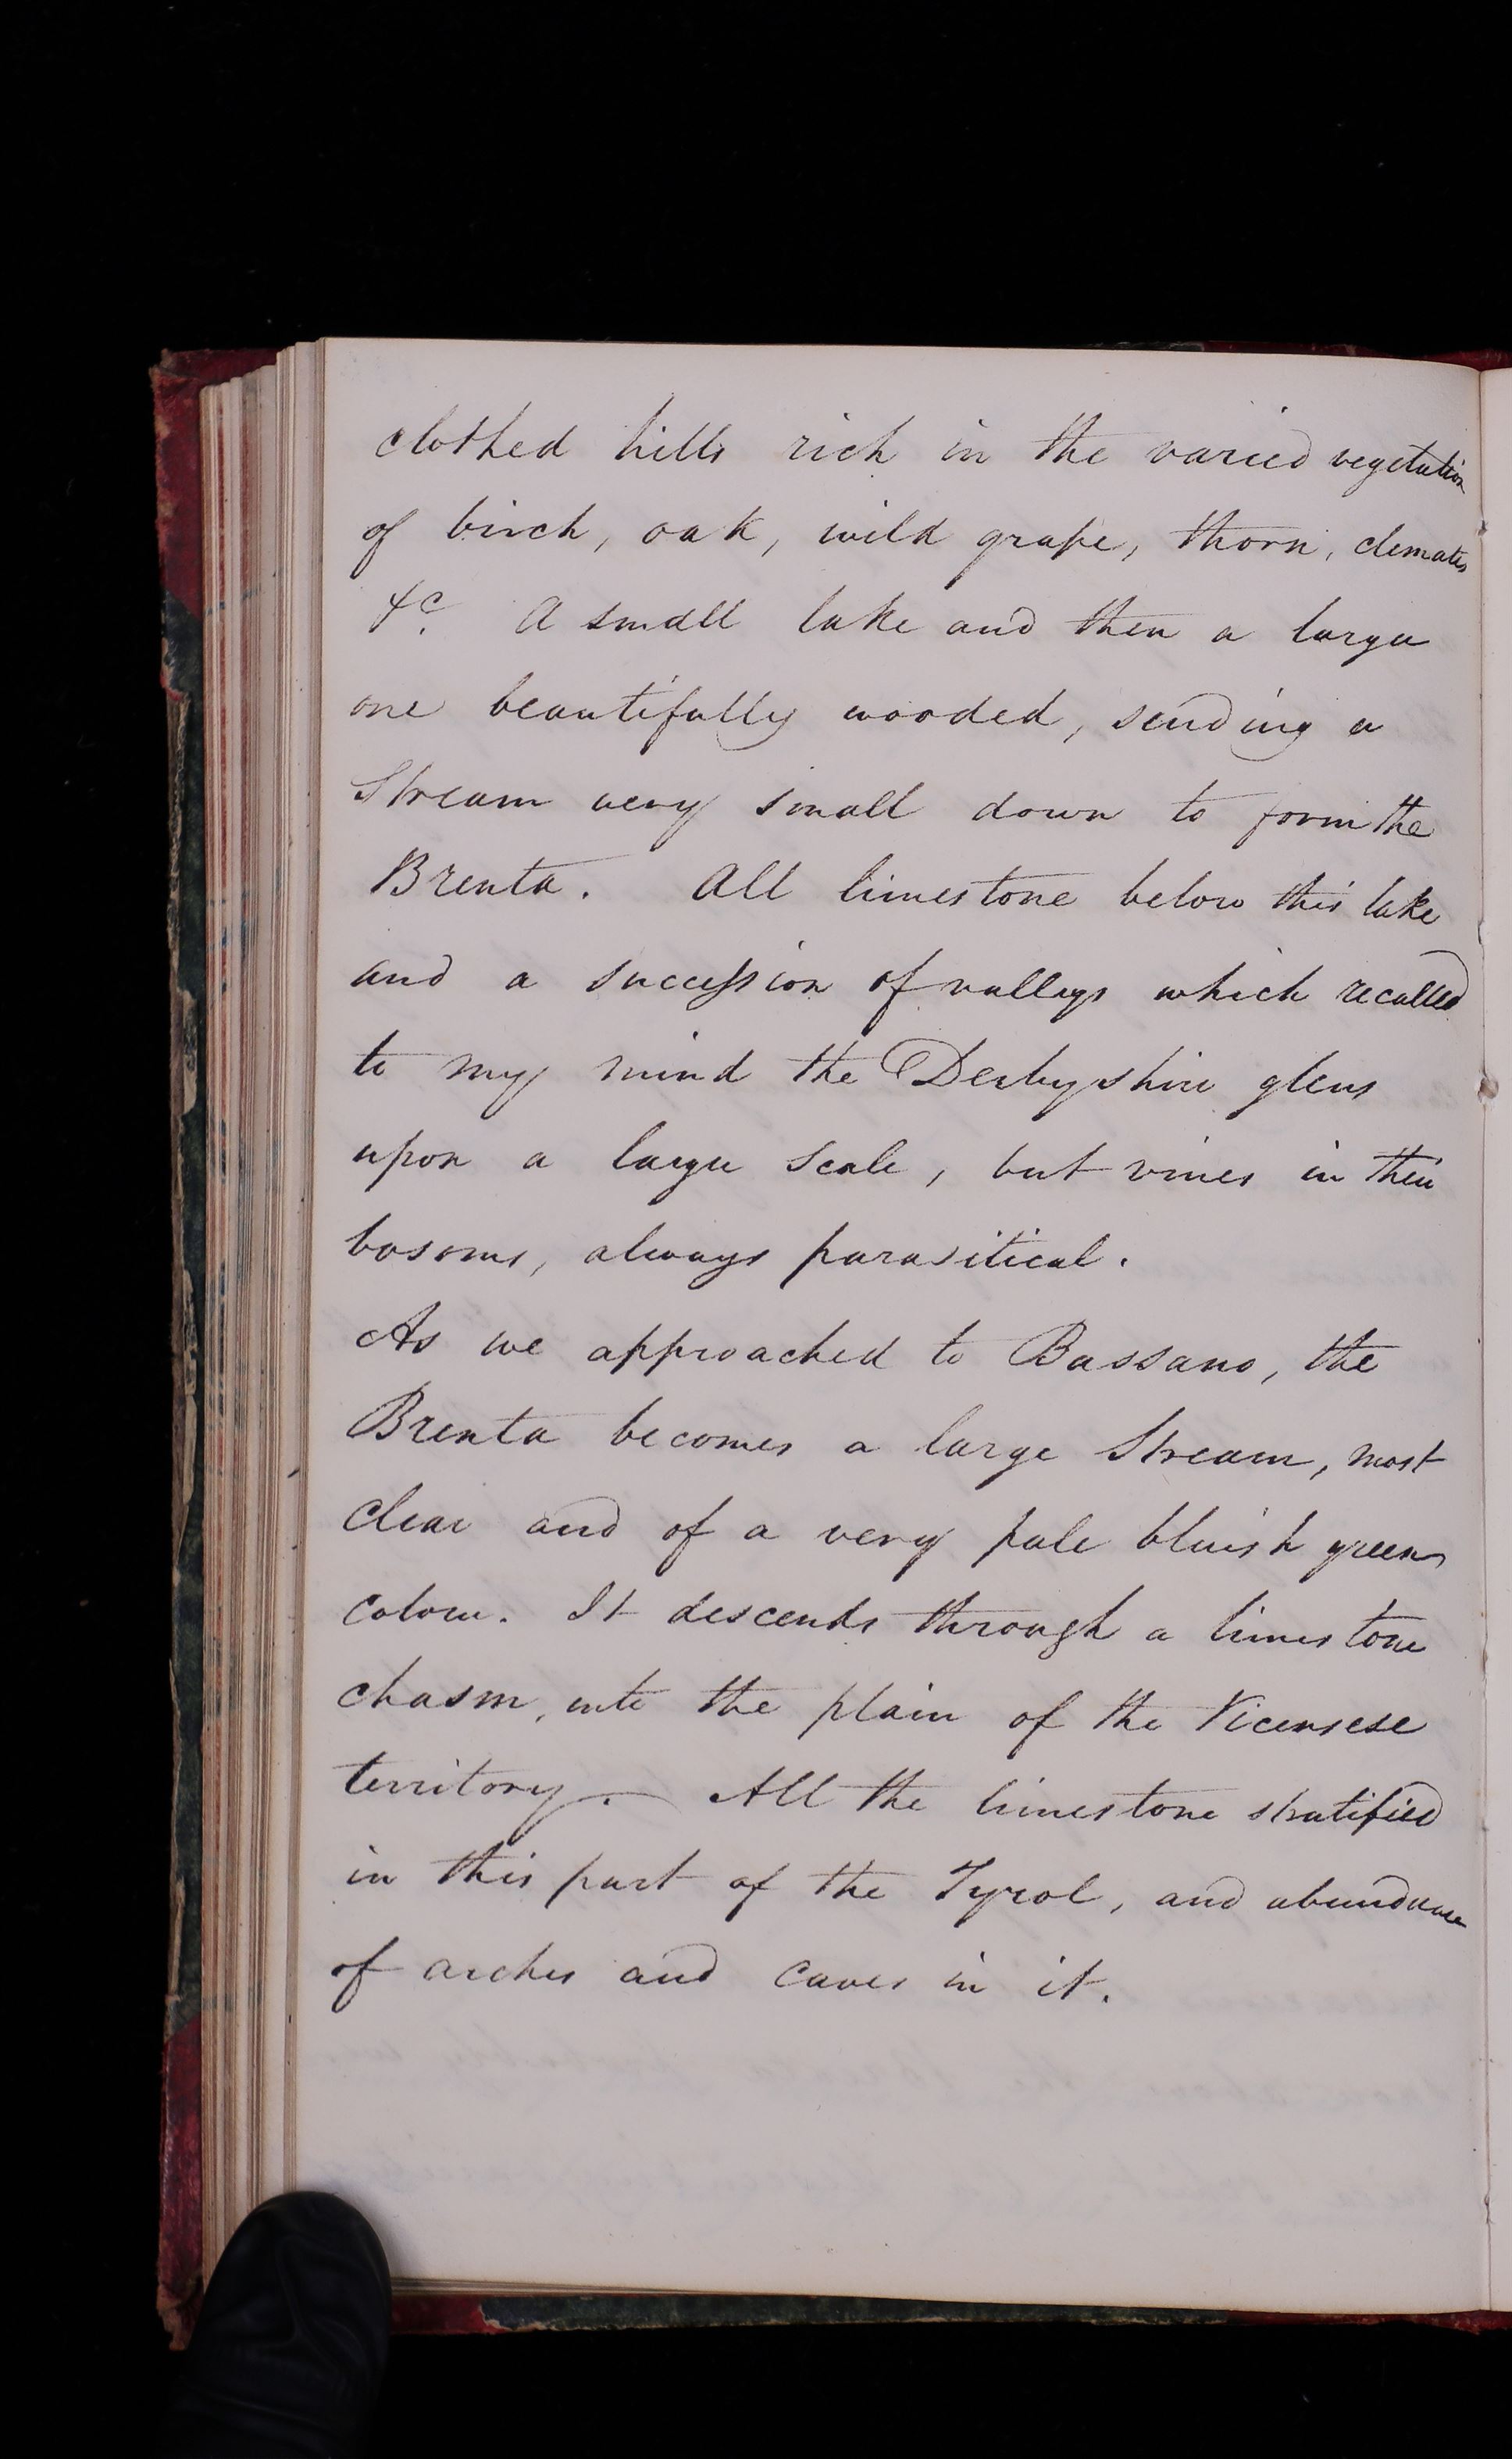 clothed hills rich in the varied vegetation
of birch, oak, wild grape, thorn, clematis
&c. A small lake and then a larger
one beautifully wooded, sending a
stream very small down to form the
Brenta. All limestone below this lake
and a succession of valleys which recalled
to my mind the Derbyshire glens
upon a larger scale, but vines in their
bosoms, always parasitical.
As we approached to Bassano, the
Brenta becomes a large stream, most
clear and of a very pale bluish green
colour. It descends through a limestone
chasm, into the plain of the Vicensese
territory. All the limestone stratified
in this part of the Tyrol, and abundance
of arches and caves in it.